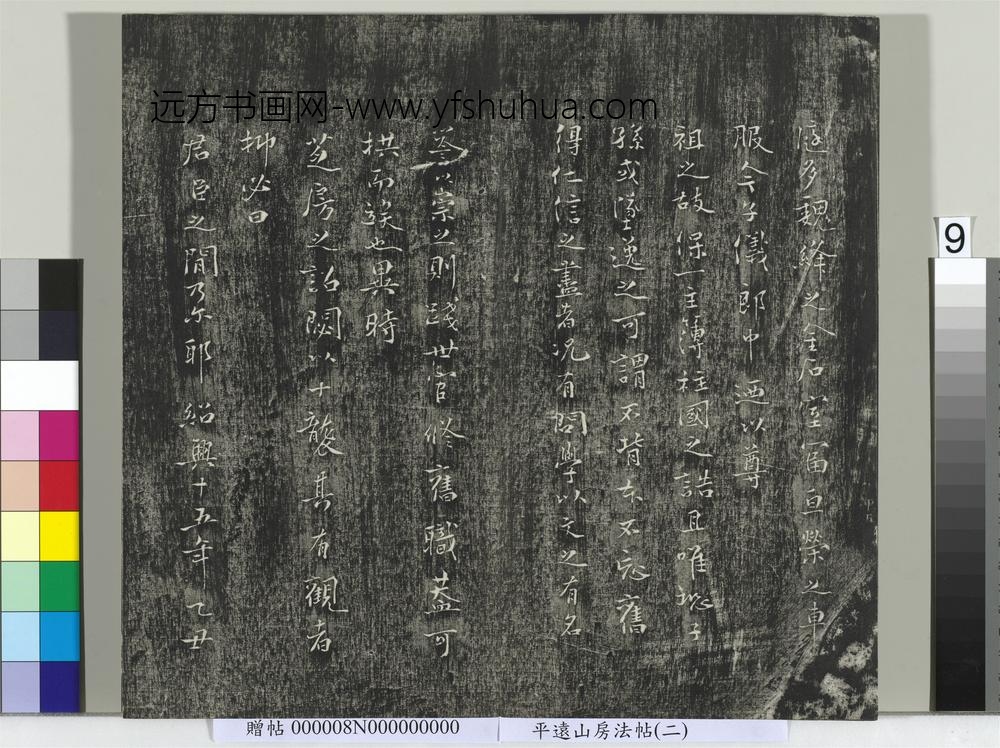 远方书画网-www.yfshuhua.com
庭多魏絳之金石室富亘榮之車
服今子儀郎中迺以尊
祖之故保一主簿柱國之誥且唯恐子
孫或墜逸之可謂不背本不忘舊
得仁信之藎者况有問學以文之有名
以崇之則踐世官修舊職蓋可
拱而竢也異時
芝房之詔闕以十襲其有觀者
抑必曰
君臣之間乃尔耶 紹興十五年乙丑
9
贈帖 000008N000000000
平遠山房法帖(二)